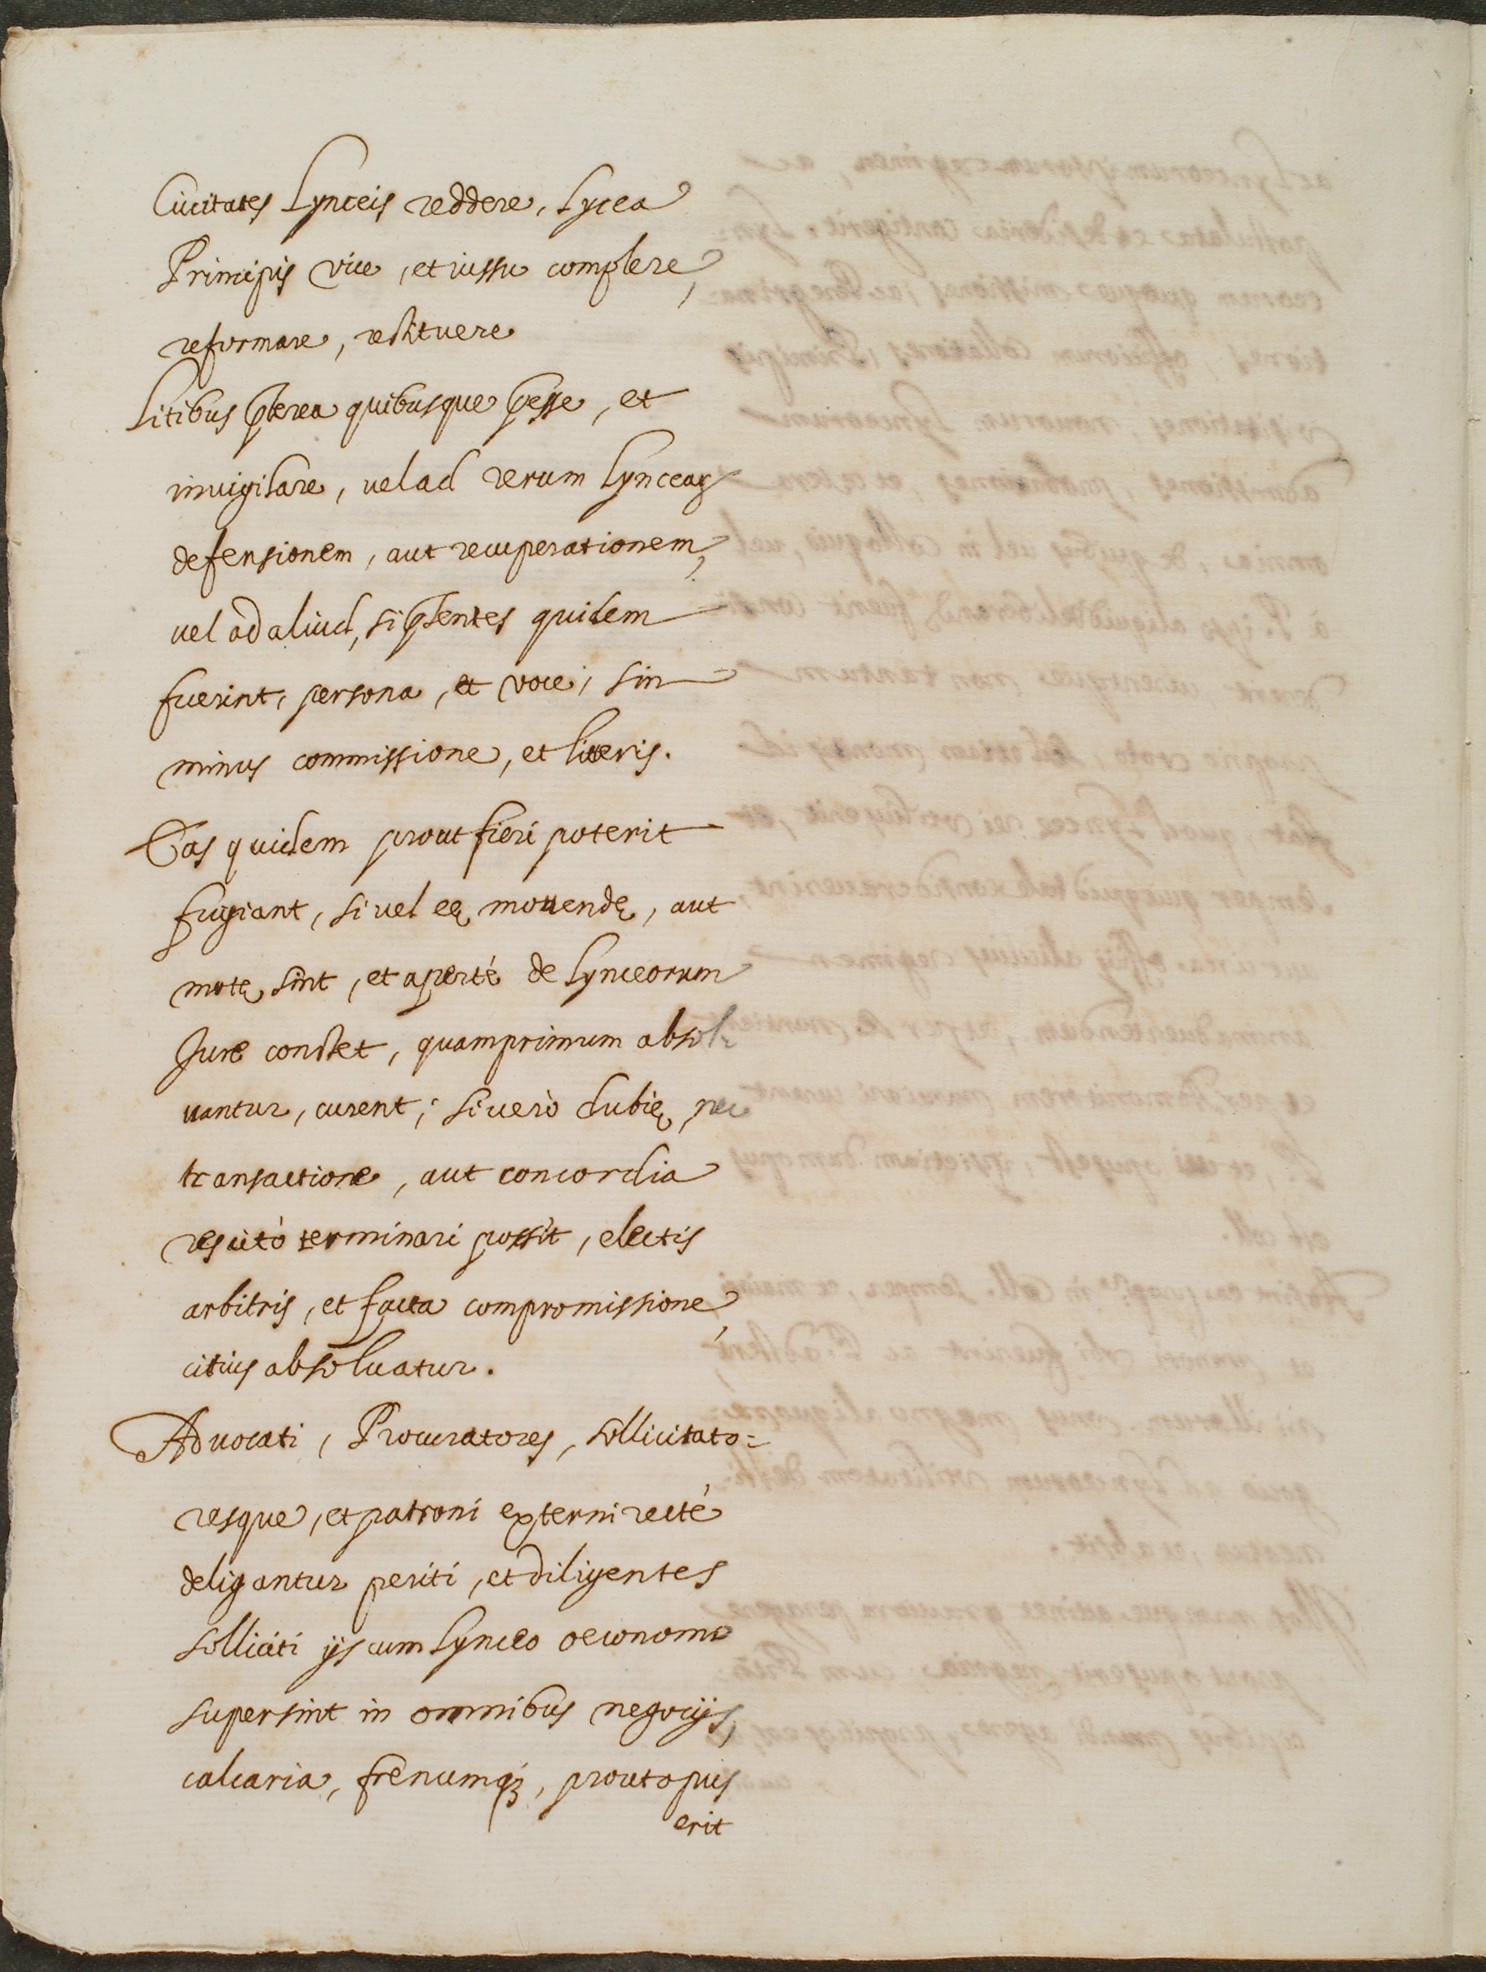 Ciuitates Lynceis reddere, Lycea
Principis vice, et iussu complere,
reformare, restituere
Litibus pterea quibusque pesse, et
inuigilare, vel ad rerum Lyncearȝ
defensionem, aut recuperationem,
uel ad aliud, si psentes quidem
fuerint, persona, et voce, sin
minus commissione, et literis.
Eas quidem prout fieri poterit
fugiant, si uel eę mouendę, aut
motę sint, et aperté de Lynceorum
Jure constet, quamprimum absol-
uantur, curent; si uerò dubię, nec
transactione, aut concordia
res citò terminari possit, electis
arbitris, et facta compromissione,
citius absoluatur.
Aduocati, Procuratores, sollicitato=
resque, et patroni externi recté
deligantur periti, et diligentes
solliciti ijs cum Lynceo oeconomo
supersint in omnibus negocijs,
calcaria, frenumqȝ, prout opus
erit